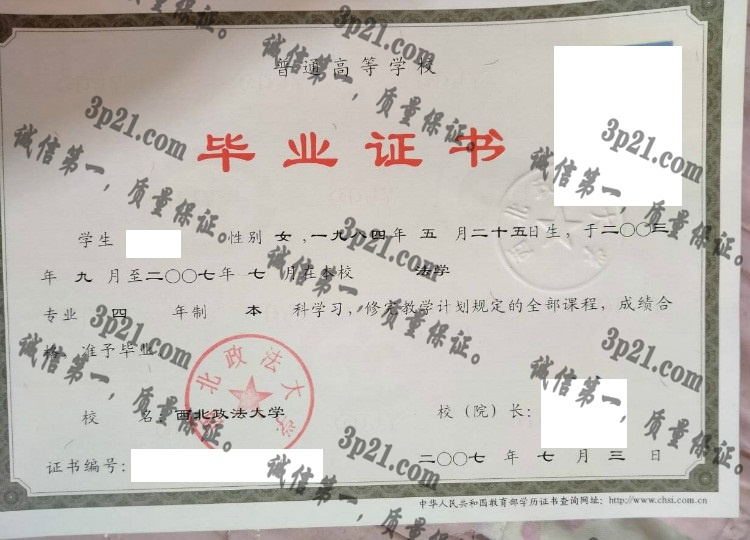 普通高等学校
毕业证书
学生 性别 女,一九八四年 五 月二十五日生,于二〇〇三
年 九 月至二〇〇七年 七 月在本校 法学
专业 四 年制 本 科学习,修完教学计划规定的全部课程,成绩合
格,准予毕业
校 名 西北政法大学
校(院)长:
证书编号:
二〇〇七 年 七 月 三 日
中华人民共和国教育部学历证书查询网址:http://www.chsi.com.cn
西北政法大学
3p21.com
诚信第一,质量保证。
3p21.com
诚信第一,质量保证。
3p21.com
诚信第一,质量保证。
3p21.com
诚信第一,质量保证。
3p21.com
诚信第一,质量保证。
3p21.com
诚信第一,质量保证。
3p21.com
诚信第一,质量保证。
3p21.com
诚信第一,质量保证。